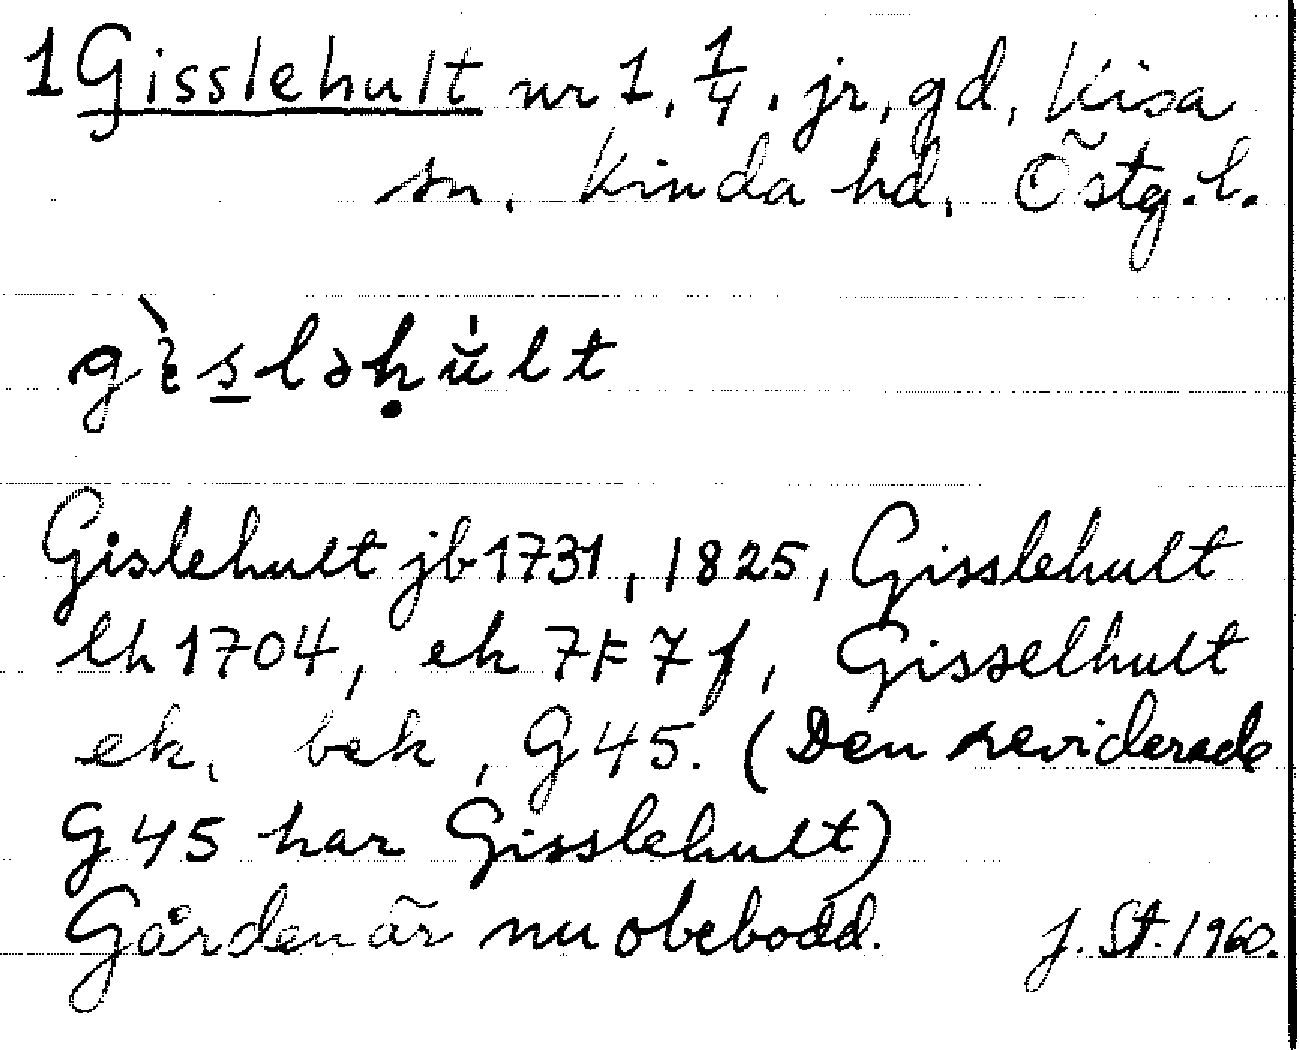 1 Gisslehult nr 1. 1/4. jr, gd, Kisa
sn. Kinda hd. Östg. l.
Gislehult jb 1731, 1825, Gisslehult
lh 1704, ek 7F7f, Gisselhult
ek, bek, G 45. (Den reviderade
G 45 har Gisslehult)
Gården är nu obebodd. J. St. 1960.